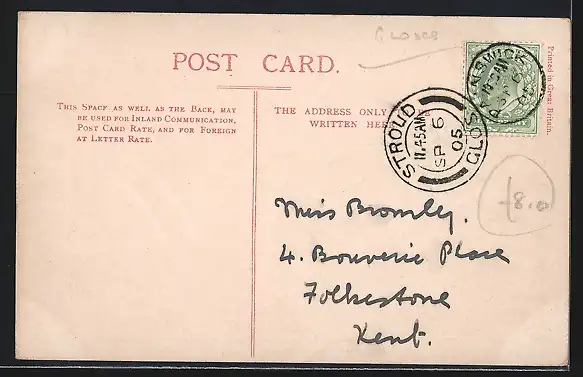 Gloses
POST CARD.
THIS SPACE AS WELL AS THE BACK, MAY
BE USED FOR INLAND COMMUNICATION,
POST CARD RATE, AND FOR FOREIGN
AT LETTER RATE.
THE ADDRESS ONLY
WRITTEN HERE
Printed in Great Britain.
PAINSWICK
STROUD
11.45AM
SP 6
05
GLOS
£8.0
Miss Bromley.
4. Bouverie Place
Folkestone
Kent.